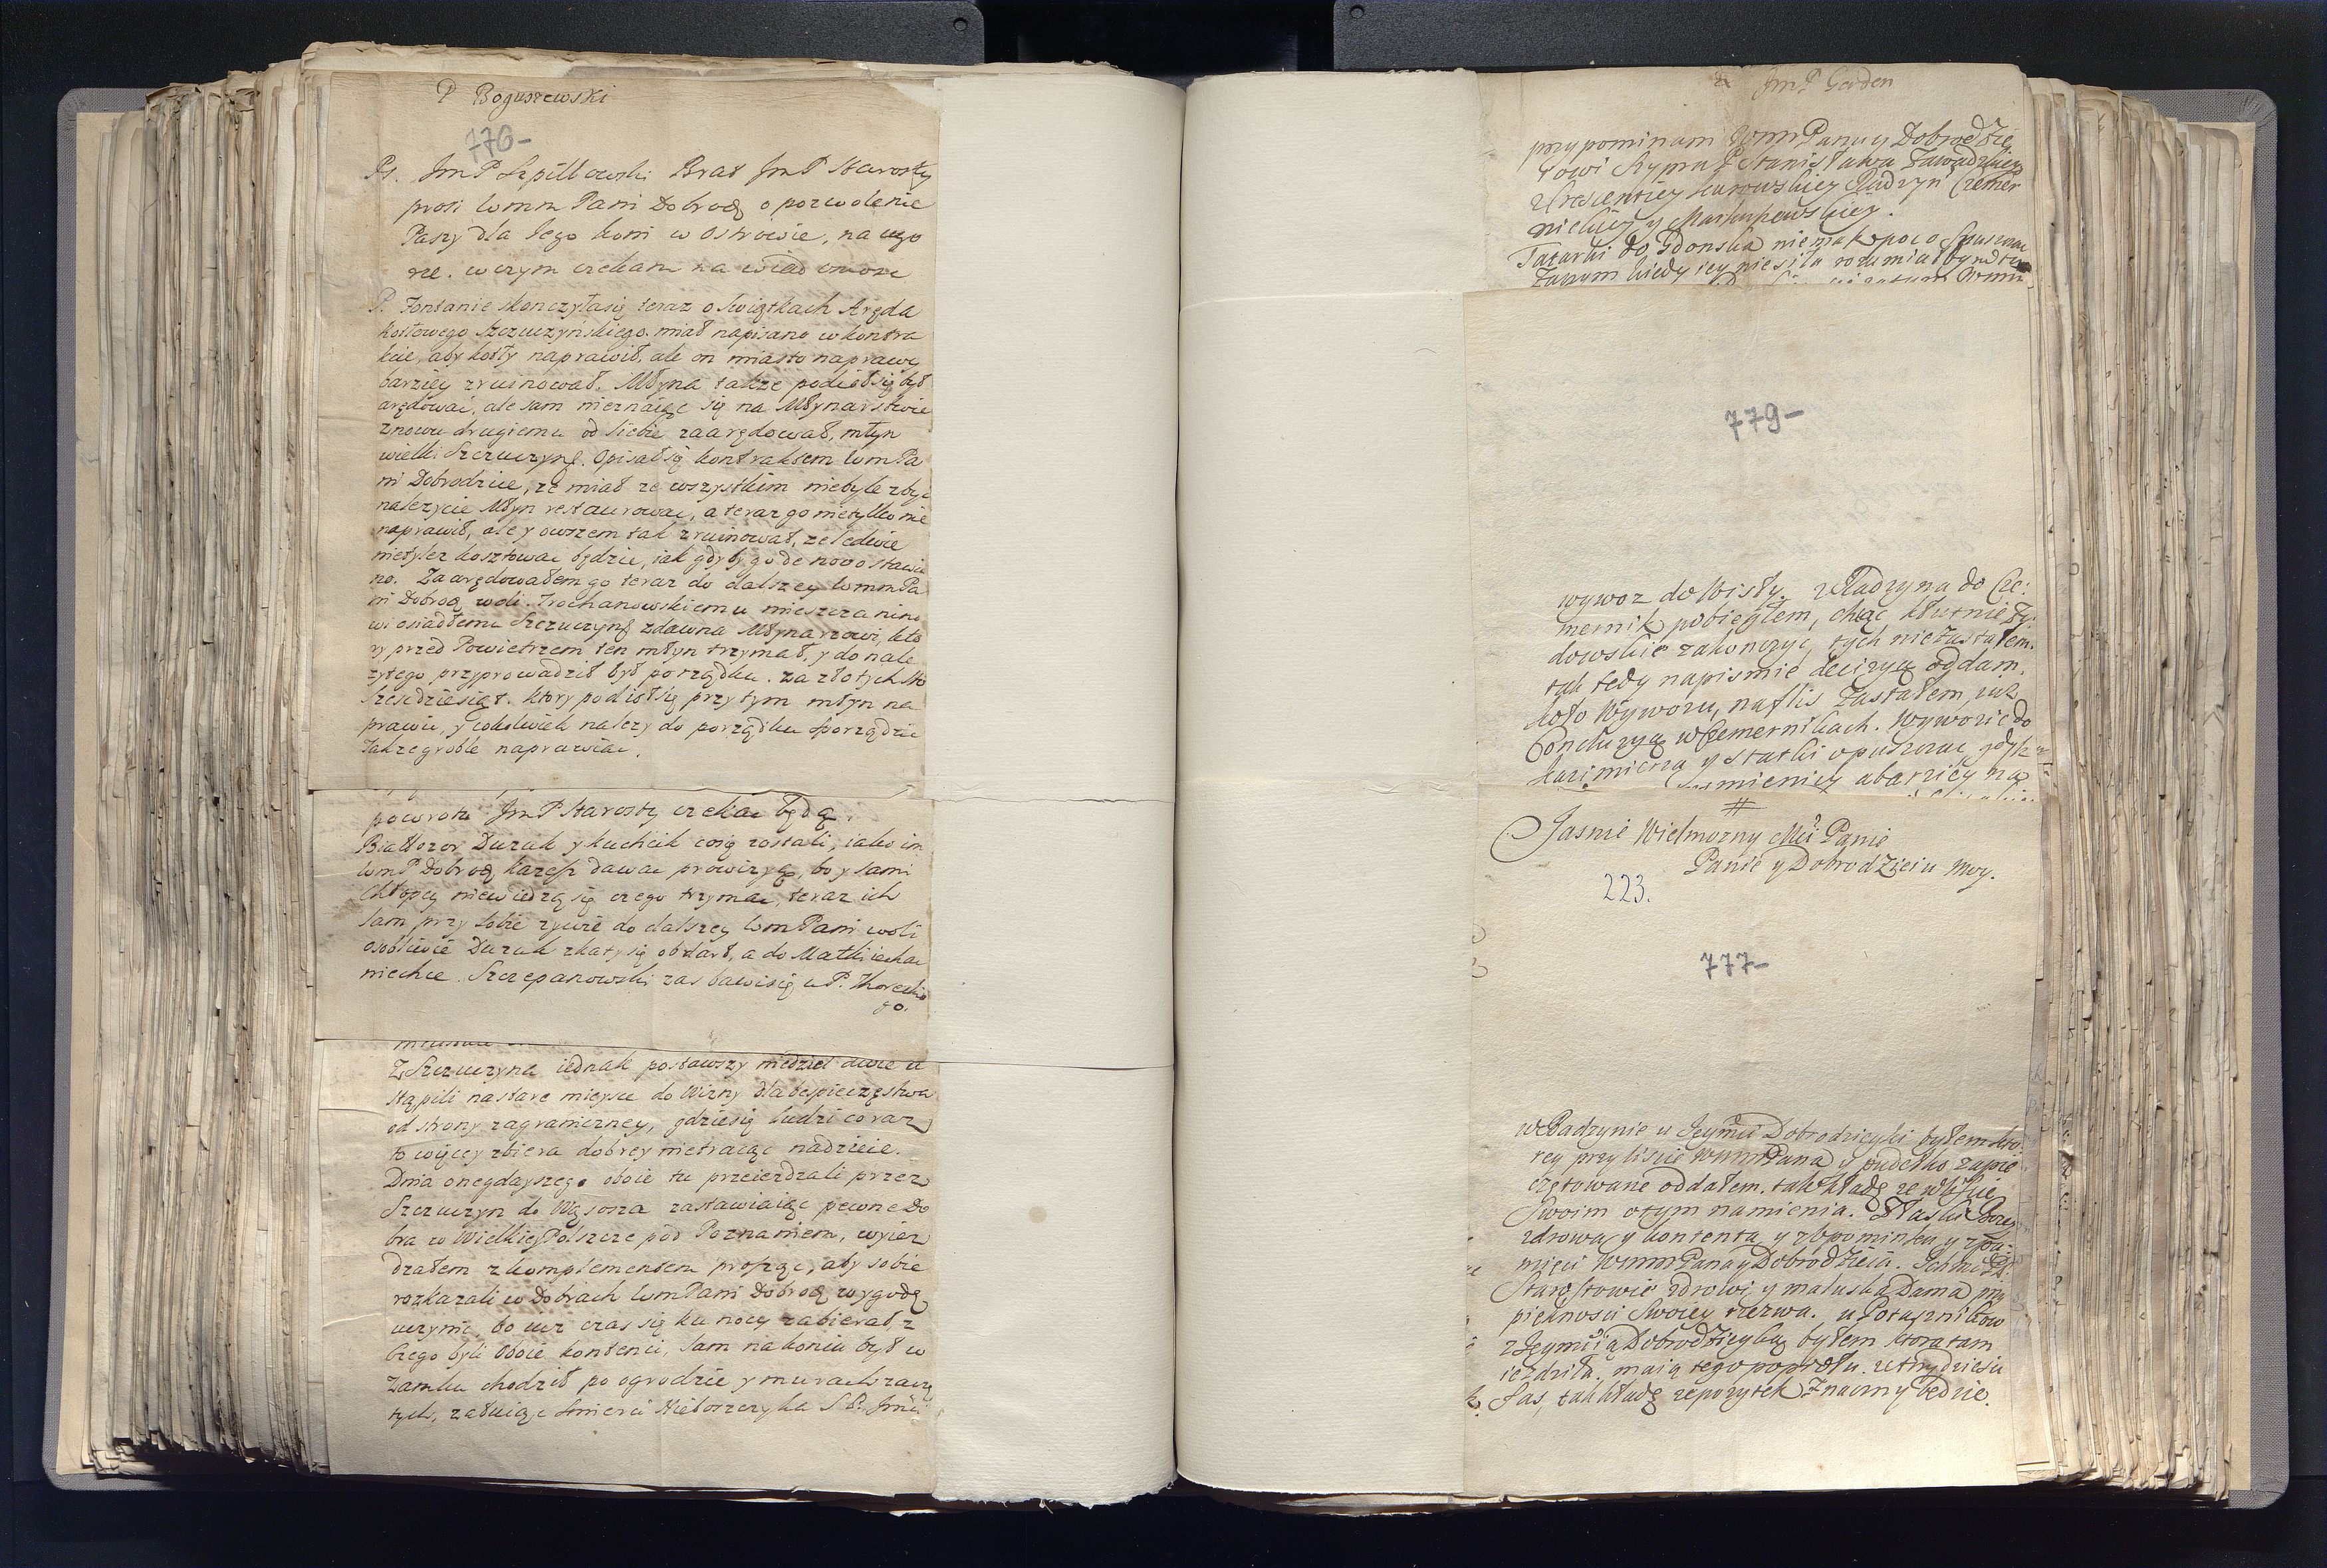 P Boguszewski
776-
Ps. Jm P Szpilkowski Brat Jm P Starosty
prosi wmm Pani Dobrodz o pozwolenie
Paszy dla Jego koni w Ostrowie, na ugo
rze. w czym czekam na wiadomosc
P. Fontanie skonczyła się teraz o Swiątkach Aręda
kotłowego Szczuczyńskiego. miał napisano w kontra
kcie, aby kotły naprawił, ale on miasto naprawy
barziey zruinował. Młyna także podiął się był
arędowac, ale sam nieznaiąc się na Młynarstwie
znowu drugiemu od siebie zaarędował, młyn
wielki Szczuczyns. Opisał się kontraktem wm Pa
ni Dobrodzice, że miał ze wszystkim niebyle zbyć
należycie Młyn restaurowac, a teraz go nietylko nie
naprawił, ale y owszem tak zruinował, że ledwie
nietylez kosztowac będzie, iak gdyby go de novo stawia
no. Zaarędowałem go teraz do dalszey wmm Pa
ni Dobrodz woli. Trochanowskiemu mieszczanino
wi osiadłemu Szczuczyns zdawna Młynarzowi, kto
ry przed Powietrzem ten młyn trzymał, y do nale
żytego przyprowadził był porządku. za złotych sto
sześdziesiąt. ktory podiął się przy tym młyn na
prawic, y cokolwiek należy do porządku sporządzic
także groble naprawiac.
powrotu Jm P Starosty czekac będę.
Białłozor Duzak y kuchcik coś zostali, iako im
wm P Dobrodz każesz dawac prowizyą, bo y sami
chłopcy niewiedzą się czego trzymac, teraz ich
sam przy sobie żywie do dalszey wm Pani woli
osobliwie Duzak zkaty się obdarł, a do Matki iechac
niechce. Szczepanowski zas bawi się u P. Thoreckie
go.
Z Szczuczyna iednak postawszy niedziel dwie u
stąpili na stare mieysce do Wizny dla bespieczęstwa
od strony zagraniczney, gdzie się ludzi coraz
to więcey zbiera dobrey nietracąc nadzieie.
Dnia onegdayszego oboie tu przeieżdżali przez
Szczuczyn do Wąsosza zastawiaiąc pewne Do
bra w Wielkiey Polszcze pod Poznaniem, wyież
dżałem z komplementem prosząc, aby sobie
rozkazali w Dobrach wm Pani Dobrodz wygodę
uczynic, bo iuż czas się ku nocy zabierał, z
czego byli oboie kontenci, sam na koniu był w
zamku chodził po ogrodzie y murach zaczę
tych, żałuiąc smierci Nieboszczyka S P. Jmci
Jm P Gorden
przypominam Wmm Panu y Dobrodzie
iowi Szypra P Stanisława Zawadzkiego
z Kurowskiey Radzyń Czemier
nickiey y Markuszewskiey.
Tatarki do Gdonska niema
779-
wywoz do Wisły. z Radzyna do Cze:
mernik pobiegłem, chcąc kłutnie Ży:
dowskie zakonczyc, tych niezastałem.
tak tedy napismie decizyą oddam.
koło Wywozu, naflis Zastałem, iuż
Conclusyą w Czemernikach. Wywozic do
kazimierza y statki opuszczac, gdysz
#
Jasnie Wielmozny Mci Panie
Panie y Dobrodzieiu Moy.
223.
777-
w Radzynie u Jeymci Dobrodzieyki byłem kto
rey przy liscie Wmm Pana y pudełko zapie
czętowane oddałem. tak kładę ze w liscie
Swoim otym namienia. z Łaski Bozey
zdrowa y kontenta y z Upominku y z pa:
mięci Wmm Pana y Dobrodzieia. Ichmć PP.
Starostowie zdrowi y maluska Dama przy
pieknosci Swoiey czerwa. u Potasznikow
z Jeymcią Dobrodzieyką byłem ktora tam
iezdziła. maią tego popiołu.
Łas, tak kładę ze pozytek Znaczny będzie.